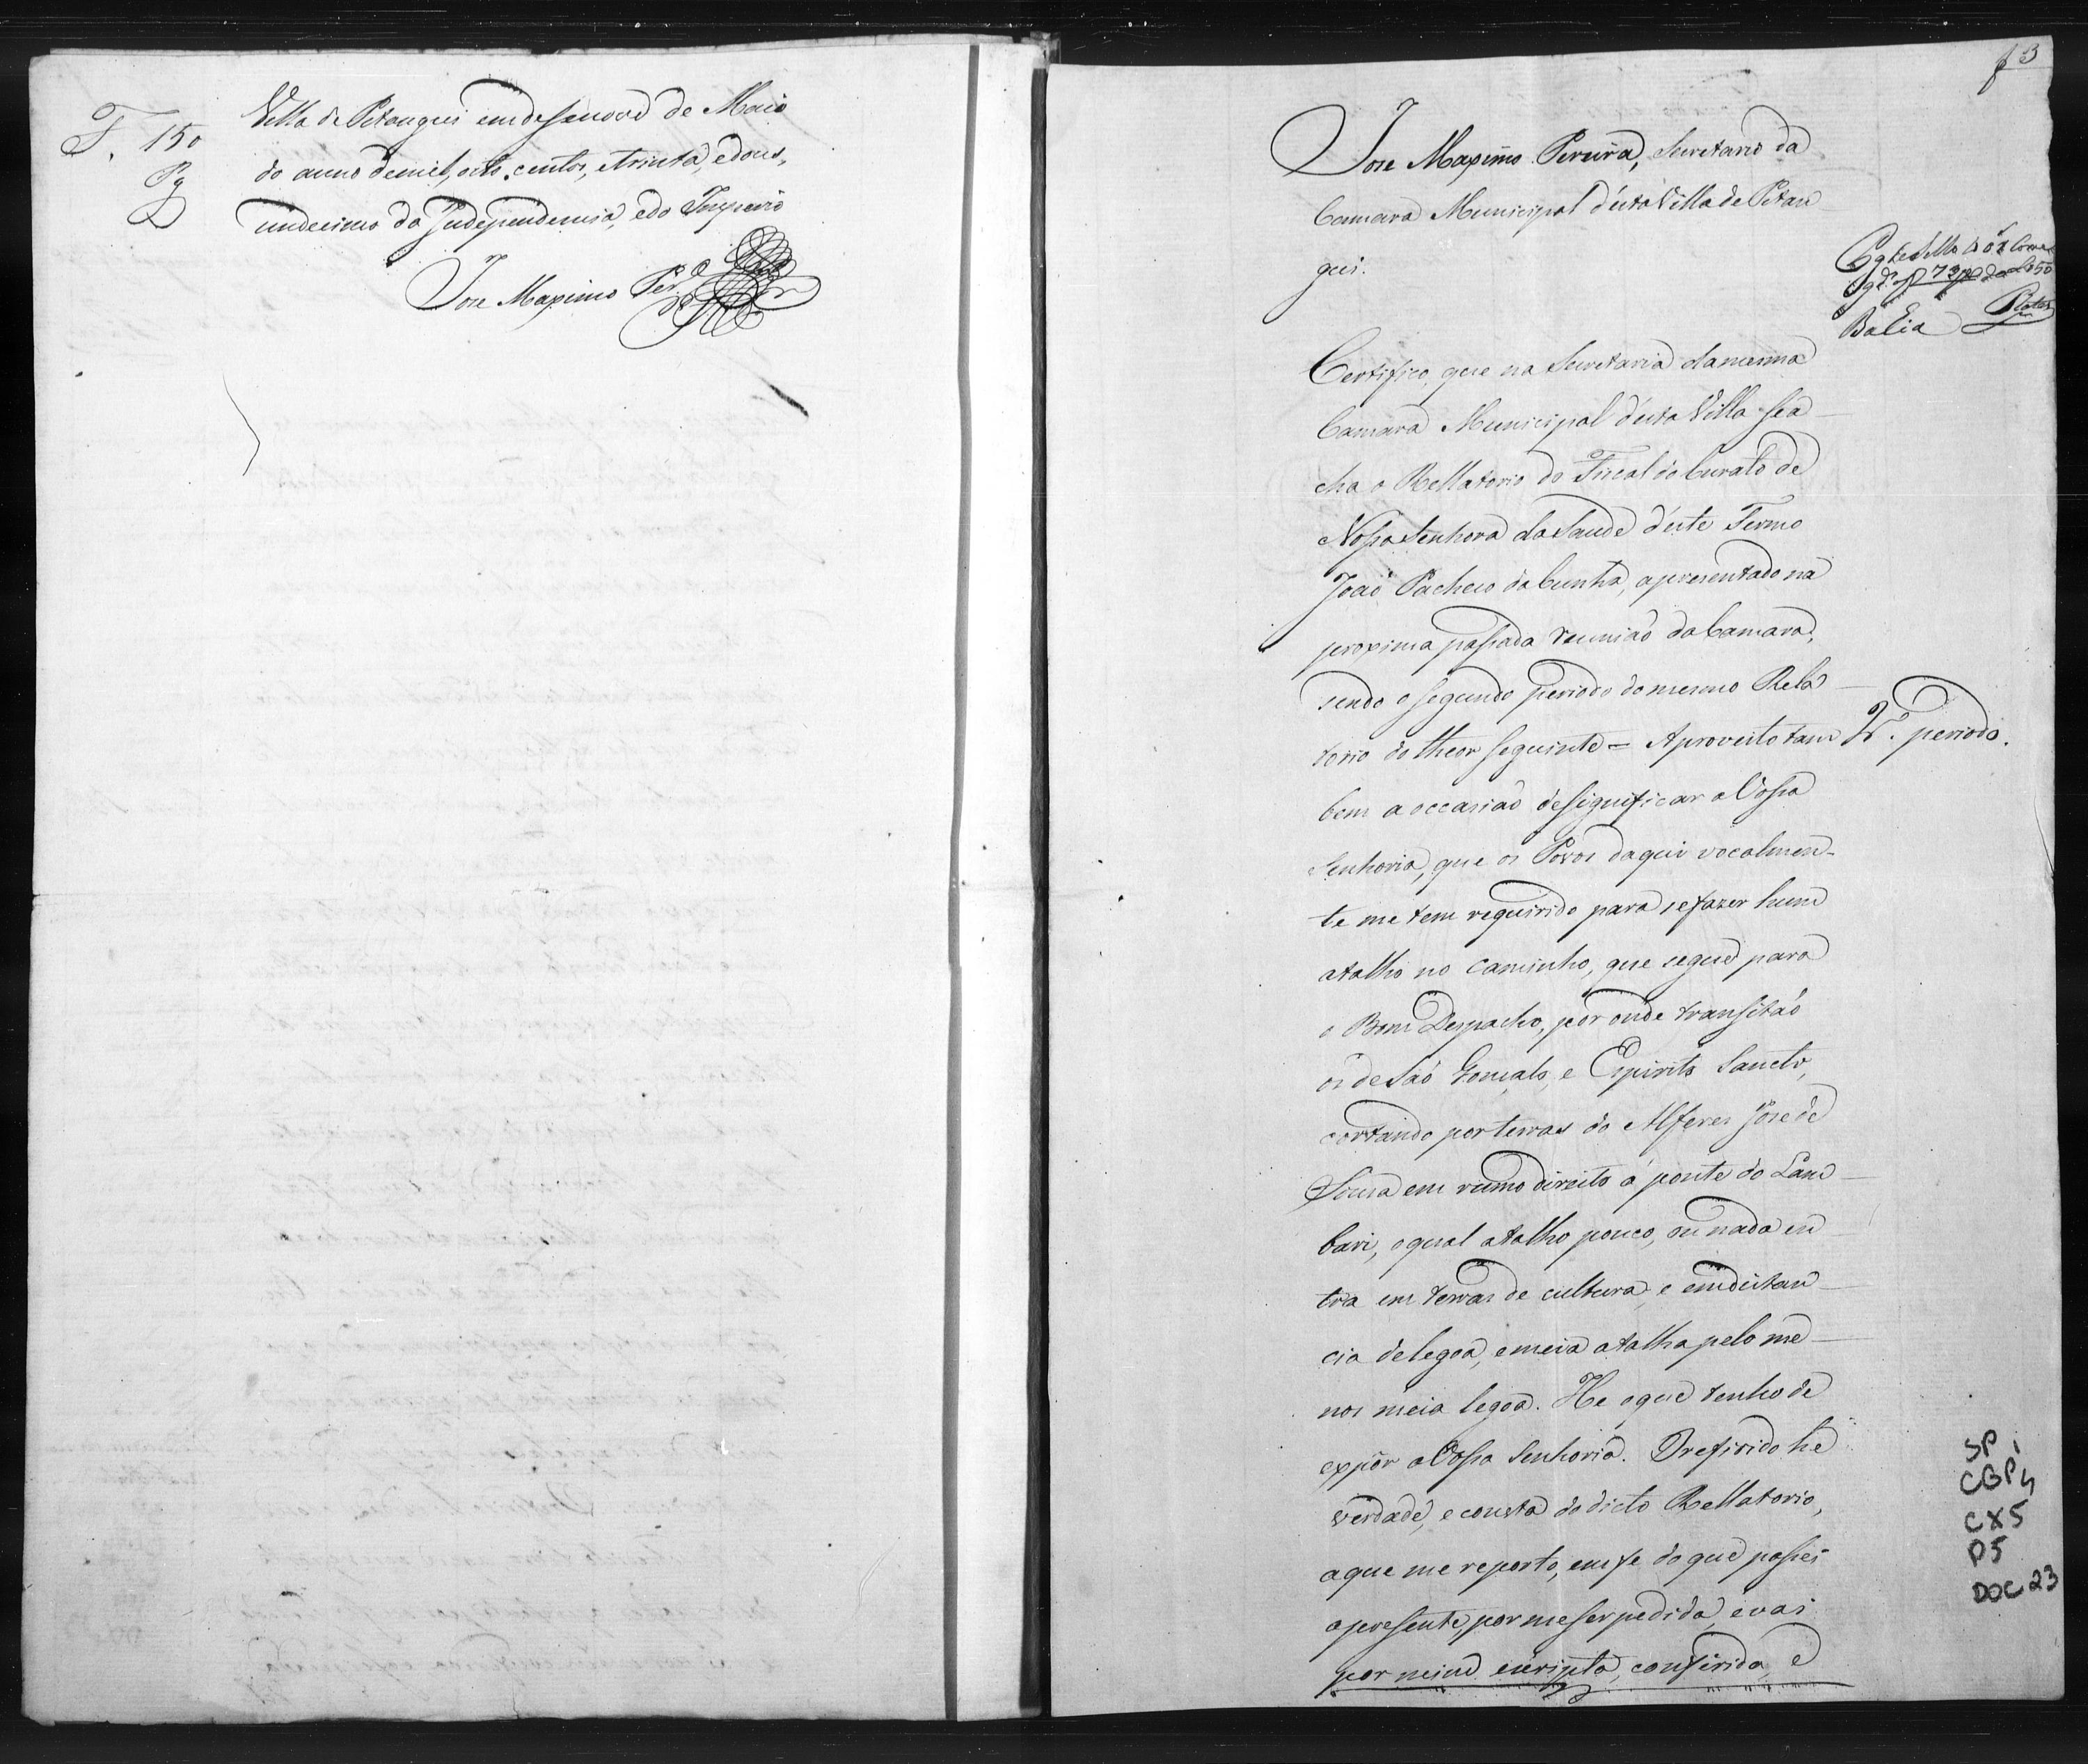 T. 150
Pg
Villa de Pitangui em desanove de Maio
do anno demil, oito centos, etrinta, edous,
undecimo da Independencia, edo Imperio
Jose Maximo Per.ª
f 3
Jose Maximo Pereira, Secretario da
Camara Municipal d'esta Villa de Pitan
gui.
Certifico, que na Secretaria damesma
Camara Municipal d'esta Villa sea
cha o Rellatorio do Fiscal do Curato de
Nossa Senhora da Saude d'este Termo
João Pacheco da Cunha, apresentado na
proxima passada reunião da Camara,
sendo o segundo periodo do mesmo Rela
torio do theor seguinte = Aproveito tam
2º. periodo.
bem a occasião de significar a Vossa
Senhoria, que os Povos daqui vocalmen-
te me tem requirido para se fazer hum
atalho no caminho, que segue para
o Bom Despacho, por onde transitão
os de São Gonçalo, e Espirito Sancto,
cortando por terras do Alferes Jose de
Sousa em rumo direito á ponte do Lam
bari, oqual atalho pouco, ou nada en
tra em terras de cultura, e emdistan
cia delegoa, emeia atalha pelo me
nos meia legoa. He oque tenho de
expôr a Vossa Senhoria. Orefirido he
verdade, e consta do dicto Rellatorio,
aque me reporto, emfe do que passei
apresente, por me ser pedida, evai
por mim escripta, conferida, e
SP 1
CGP 4
CX5
P5
DOC 23